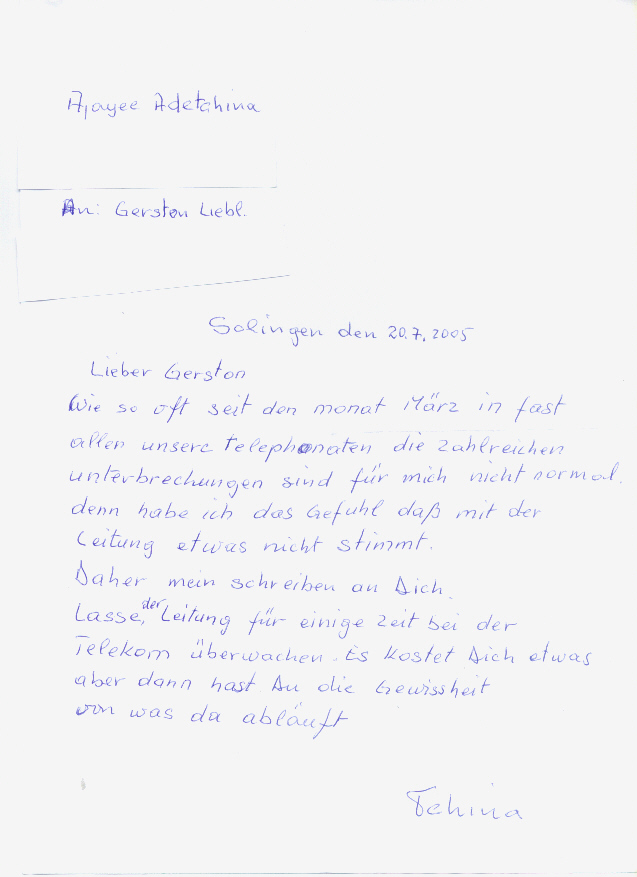 Ajayee Adetahina
An: Gerston Liebl.
Solingen den 20.7.2005
Lieber Gerston
Wie so oft seit den monat März in fast
allen unsere telephonaten die zahlreichen
unterbrechungen sind für mich nicht normal.
denn habe ich das Gefuhl daß mit der
Leitung etwas nicht stimmt.
Daher mein schreiben an Dich.
Lasse, der Leitung für einige Zeit bei der
Telekom überwachen. Es kostet Dich etwas
aber dann hast Du die Gewissheit
von was da abläuft
Tehina